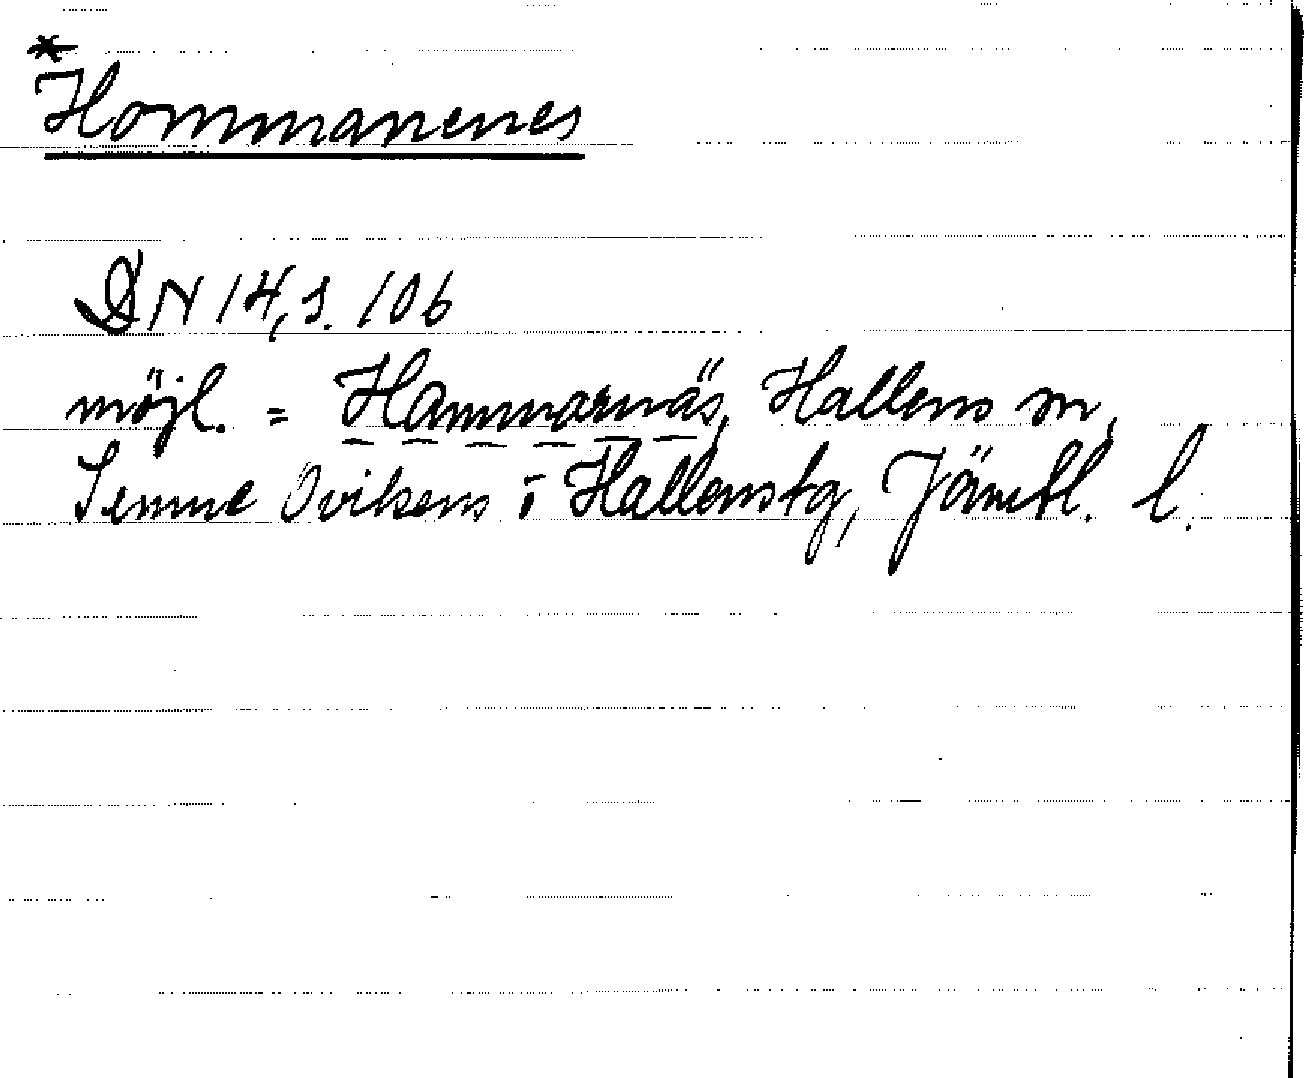 *Hommanenes
DN 14, s. 106
möjl. = Hammarnäs, Hallens sn,
Sunne Ovikens o Hallens tg, Jämtl. l.